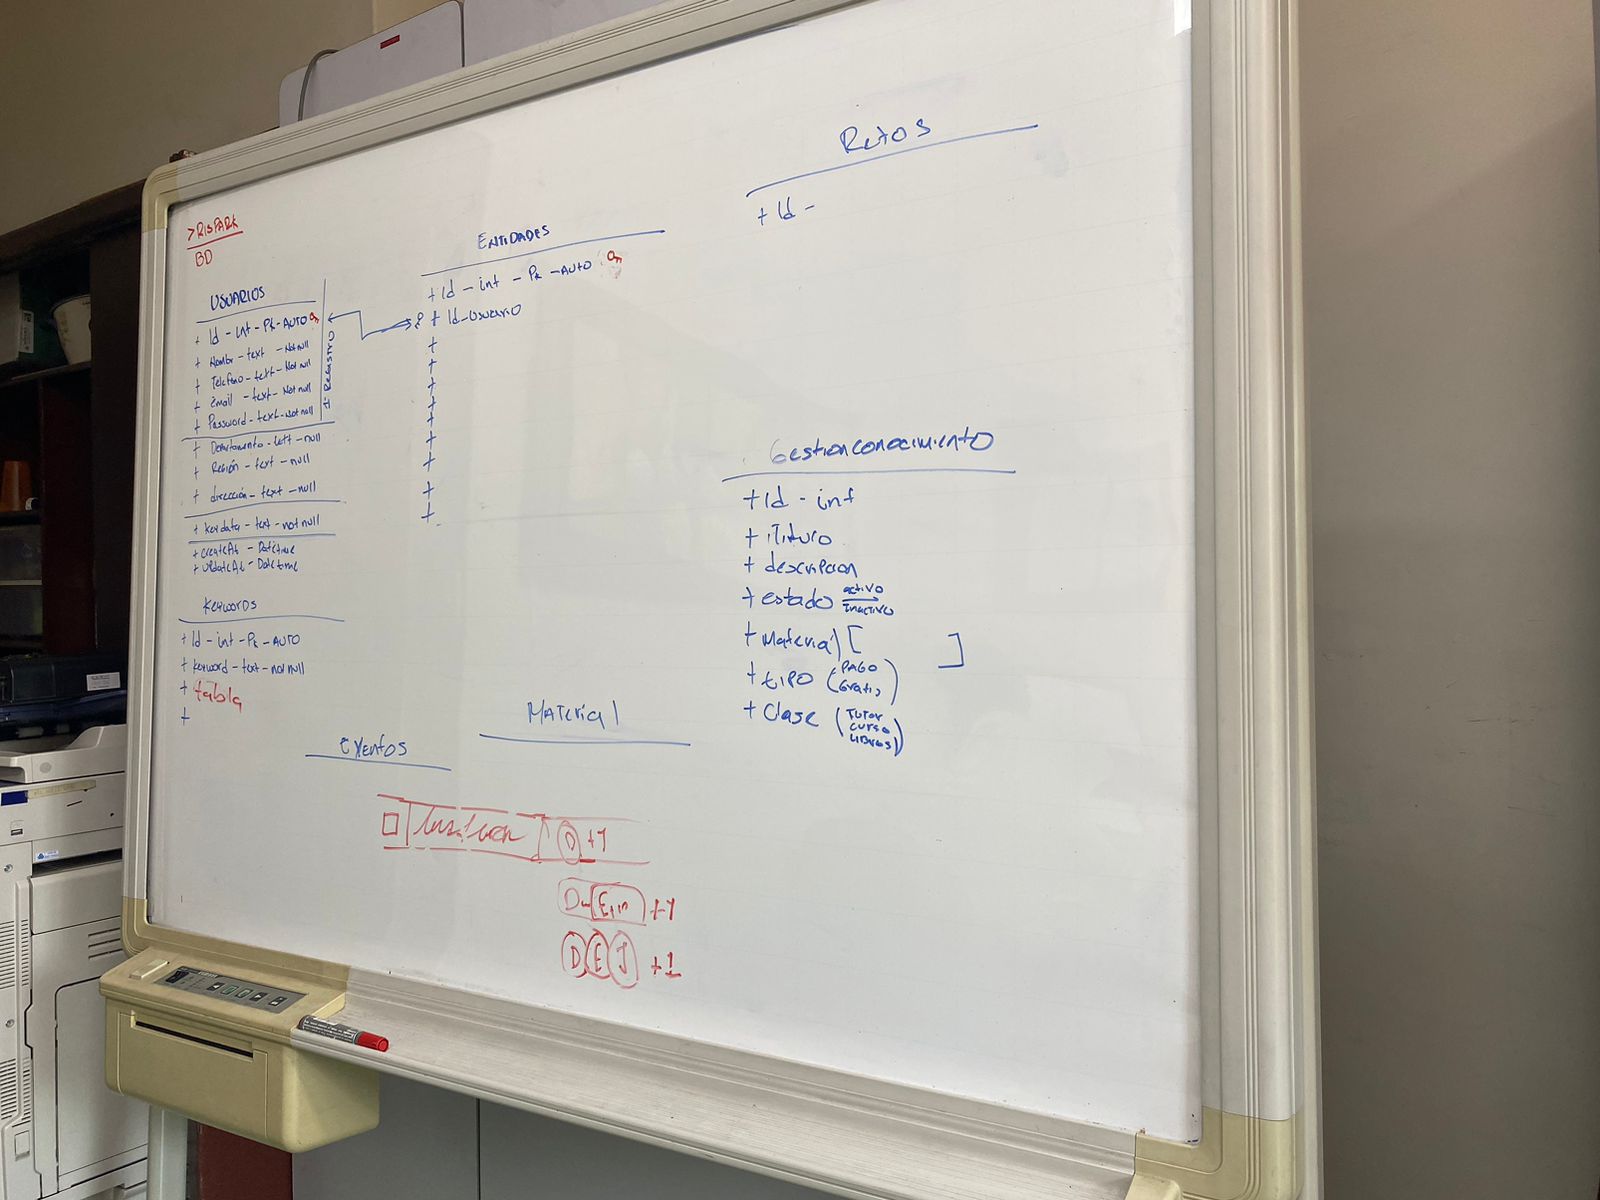 >RISPARK
BD
USUARIOS
+ Id - int - Pk - AUTO
+ Nombr - text - Not null
+ Telefono - text - Not null
+ Email - text - Not null
+ Password - text - Not null
+ Departamento - text - null
+ Región - text - null
+ dirección - text - null
+ keydata - text - not null
+ createAt - Datetime
+ UpdateAt - Datetime
Registro
Keywords
+ Id - int - Pk - AUTO
+ keyword - text - not null
+ tabla
+
ENTIDADES
+ Id - int - Pk - AUTO
+ Id-Usuario
+
+
+
+
+
+
+
+
+
Retos
+ Id -
Gestionconocimiento
+ Id - int
+ Titulo
+ descripcion
+ estado activo
inactivo
+ Material [ ]
+ tipo (PAGO
Gratis)
+ Clase (Tutor
curso
Libros)
Eventos
Material
D +1
+1
D E J +1